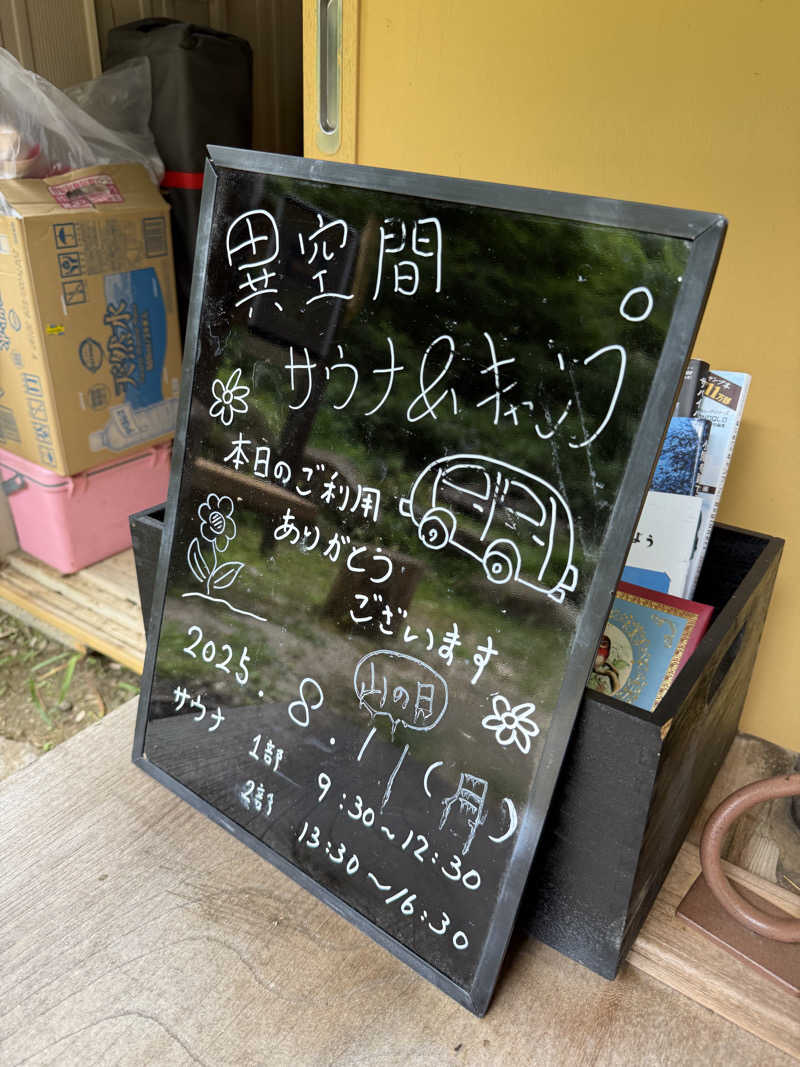 異空間
サウナ&キャンプ
本日のご利用
ありがとう
ございます
山の日
2025.8.11(月)
サウナ
1部 9:30~12:30
2部 13:30~16:30
天然水